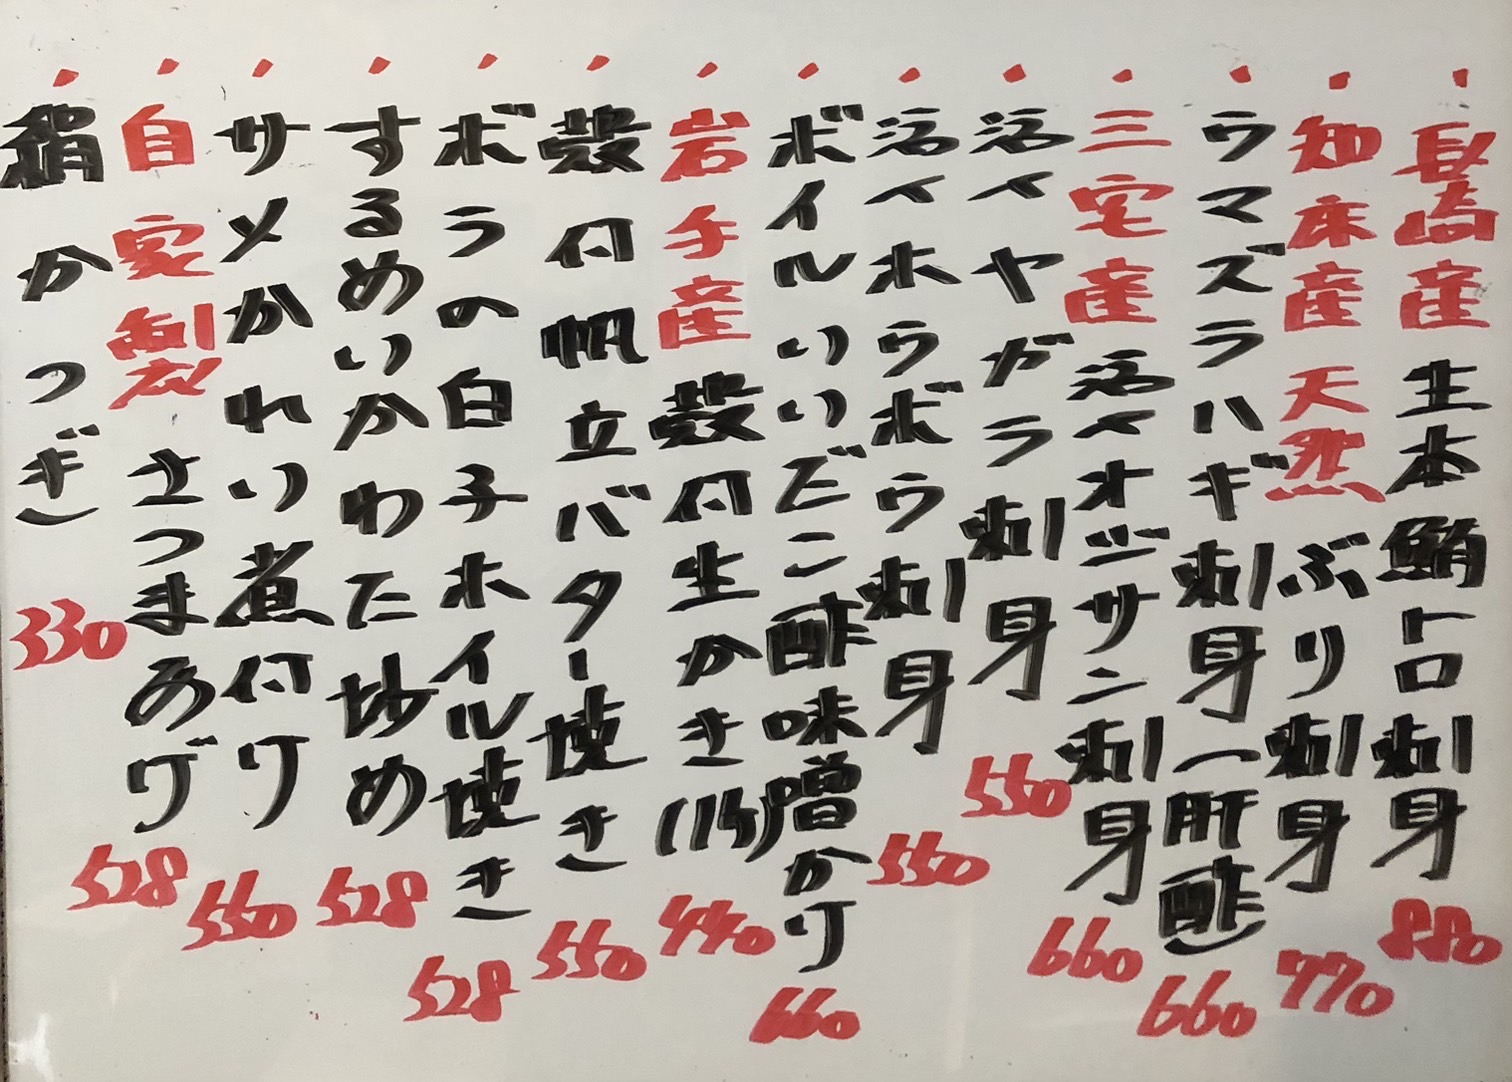 ・長崎産 生本鮪トロ刺身 880
・知床産 天然 ぶり刺身 770
・ウマズラハギ刺身(肝酢) 660
・三宅産 活〆オジサン刺身 660
・活〆ヤガラ刺身 550
・活〆ホウボウ刺身 550
・ボイルいいだこ酢味噌かけ 660
・岩手産 殻付生かき(1ケ) 440
・殻付帆立バター焼き 550
・ボラの白子ホイル焼き 528
・するめいかわた炒め 528
・サメかれい煮付け 550
・自家製 さつまあげ 528
・絹かつぎ 330